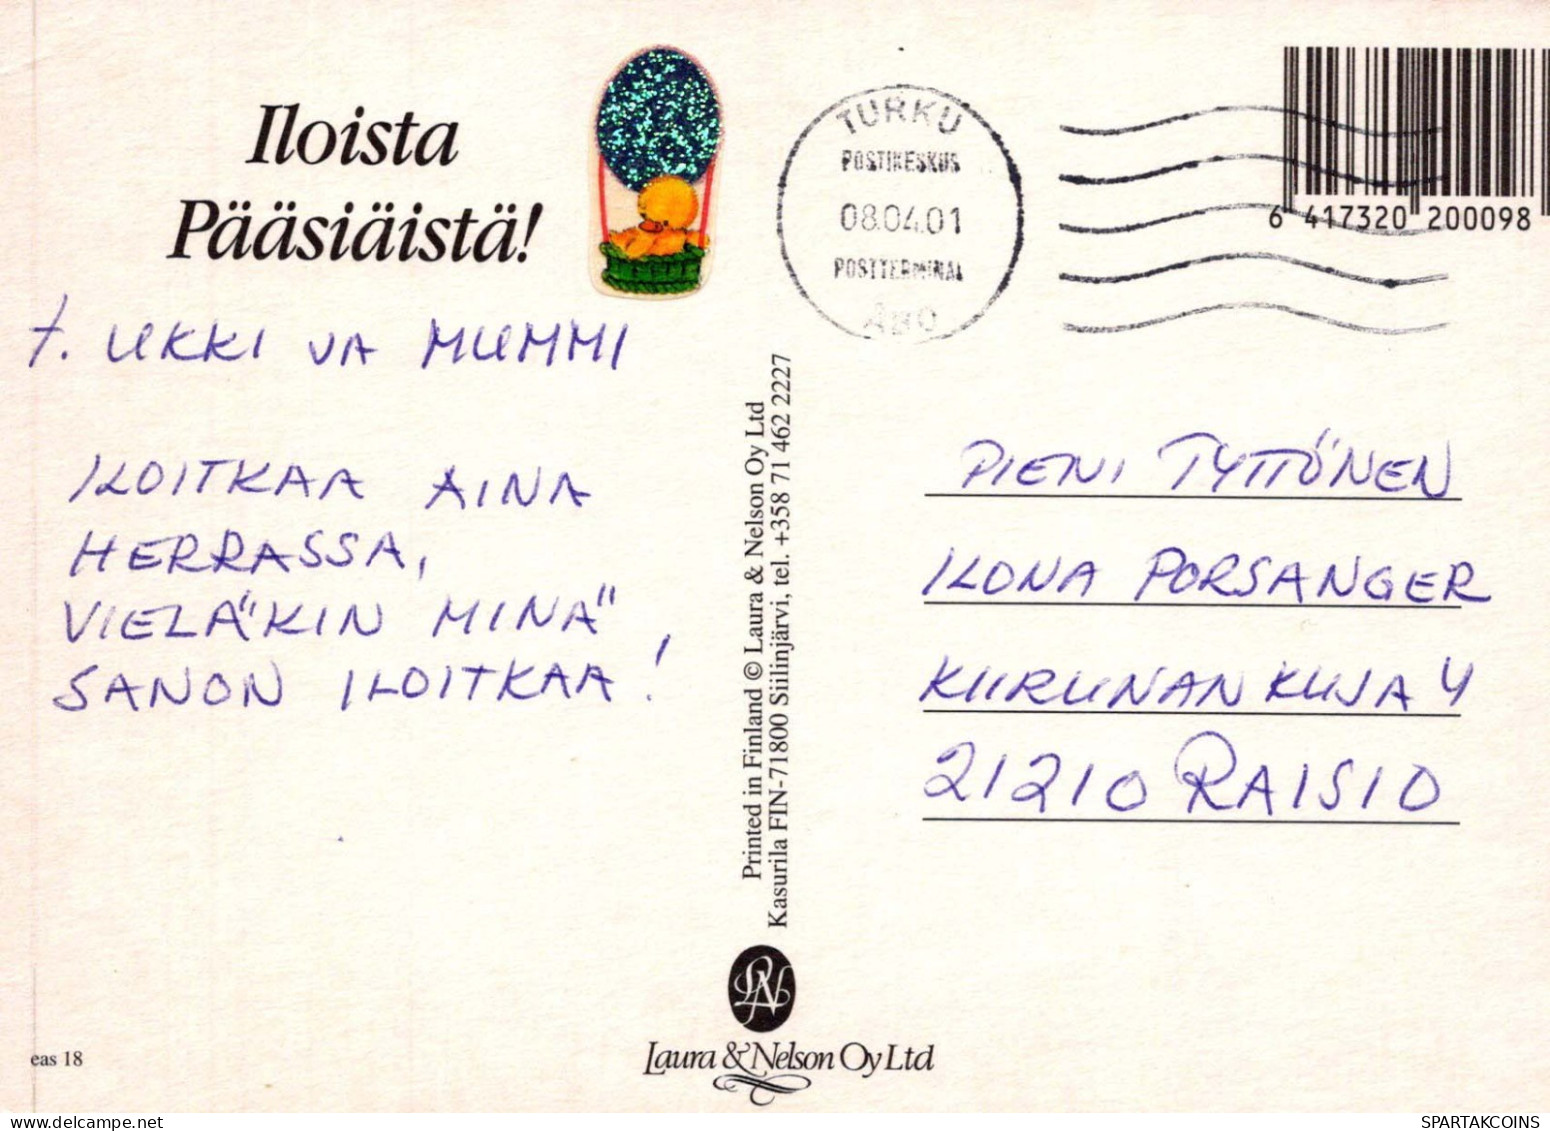 Iloista
Pääsiäistä!
T. UKKI JA MUMMI
ILOITKAA AINA
HERRASSA,
VIELÄKIN MINÄ
SANON ILOITKAA!
eas 18
TURKU
POSTIKESKUS
08.04.01
POSTTERMINAL
ÅBO
6 417320 200098
Printed in Finland © Laura & Nelson Oy Ltd
Kasurila FIN-71800 Siilinjärvi, tel. +358 71 462 2227
PIENI TYTTÖNEN
ILONA PORSANGER
KIIRUNANKUJA 4
21210 RAISIO
LN
Laura & Nelson Oy Ltd
SPARTAKCOINS